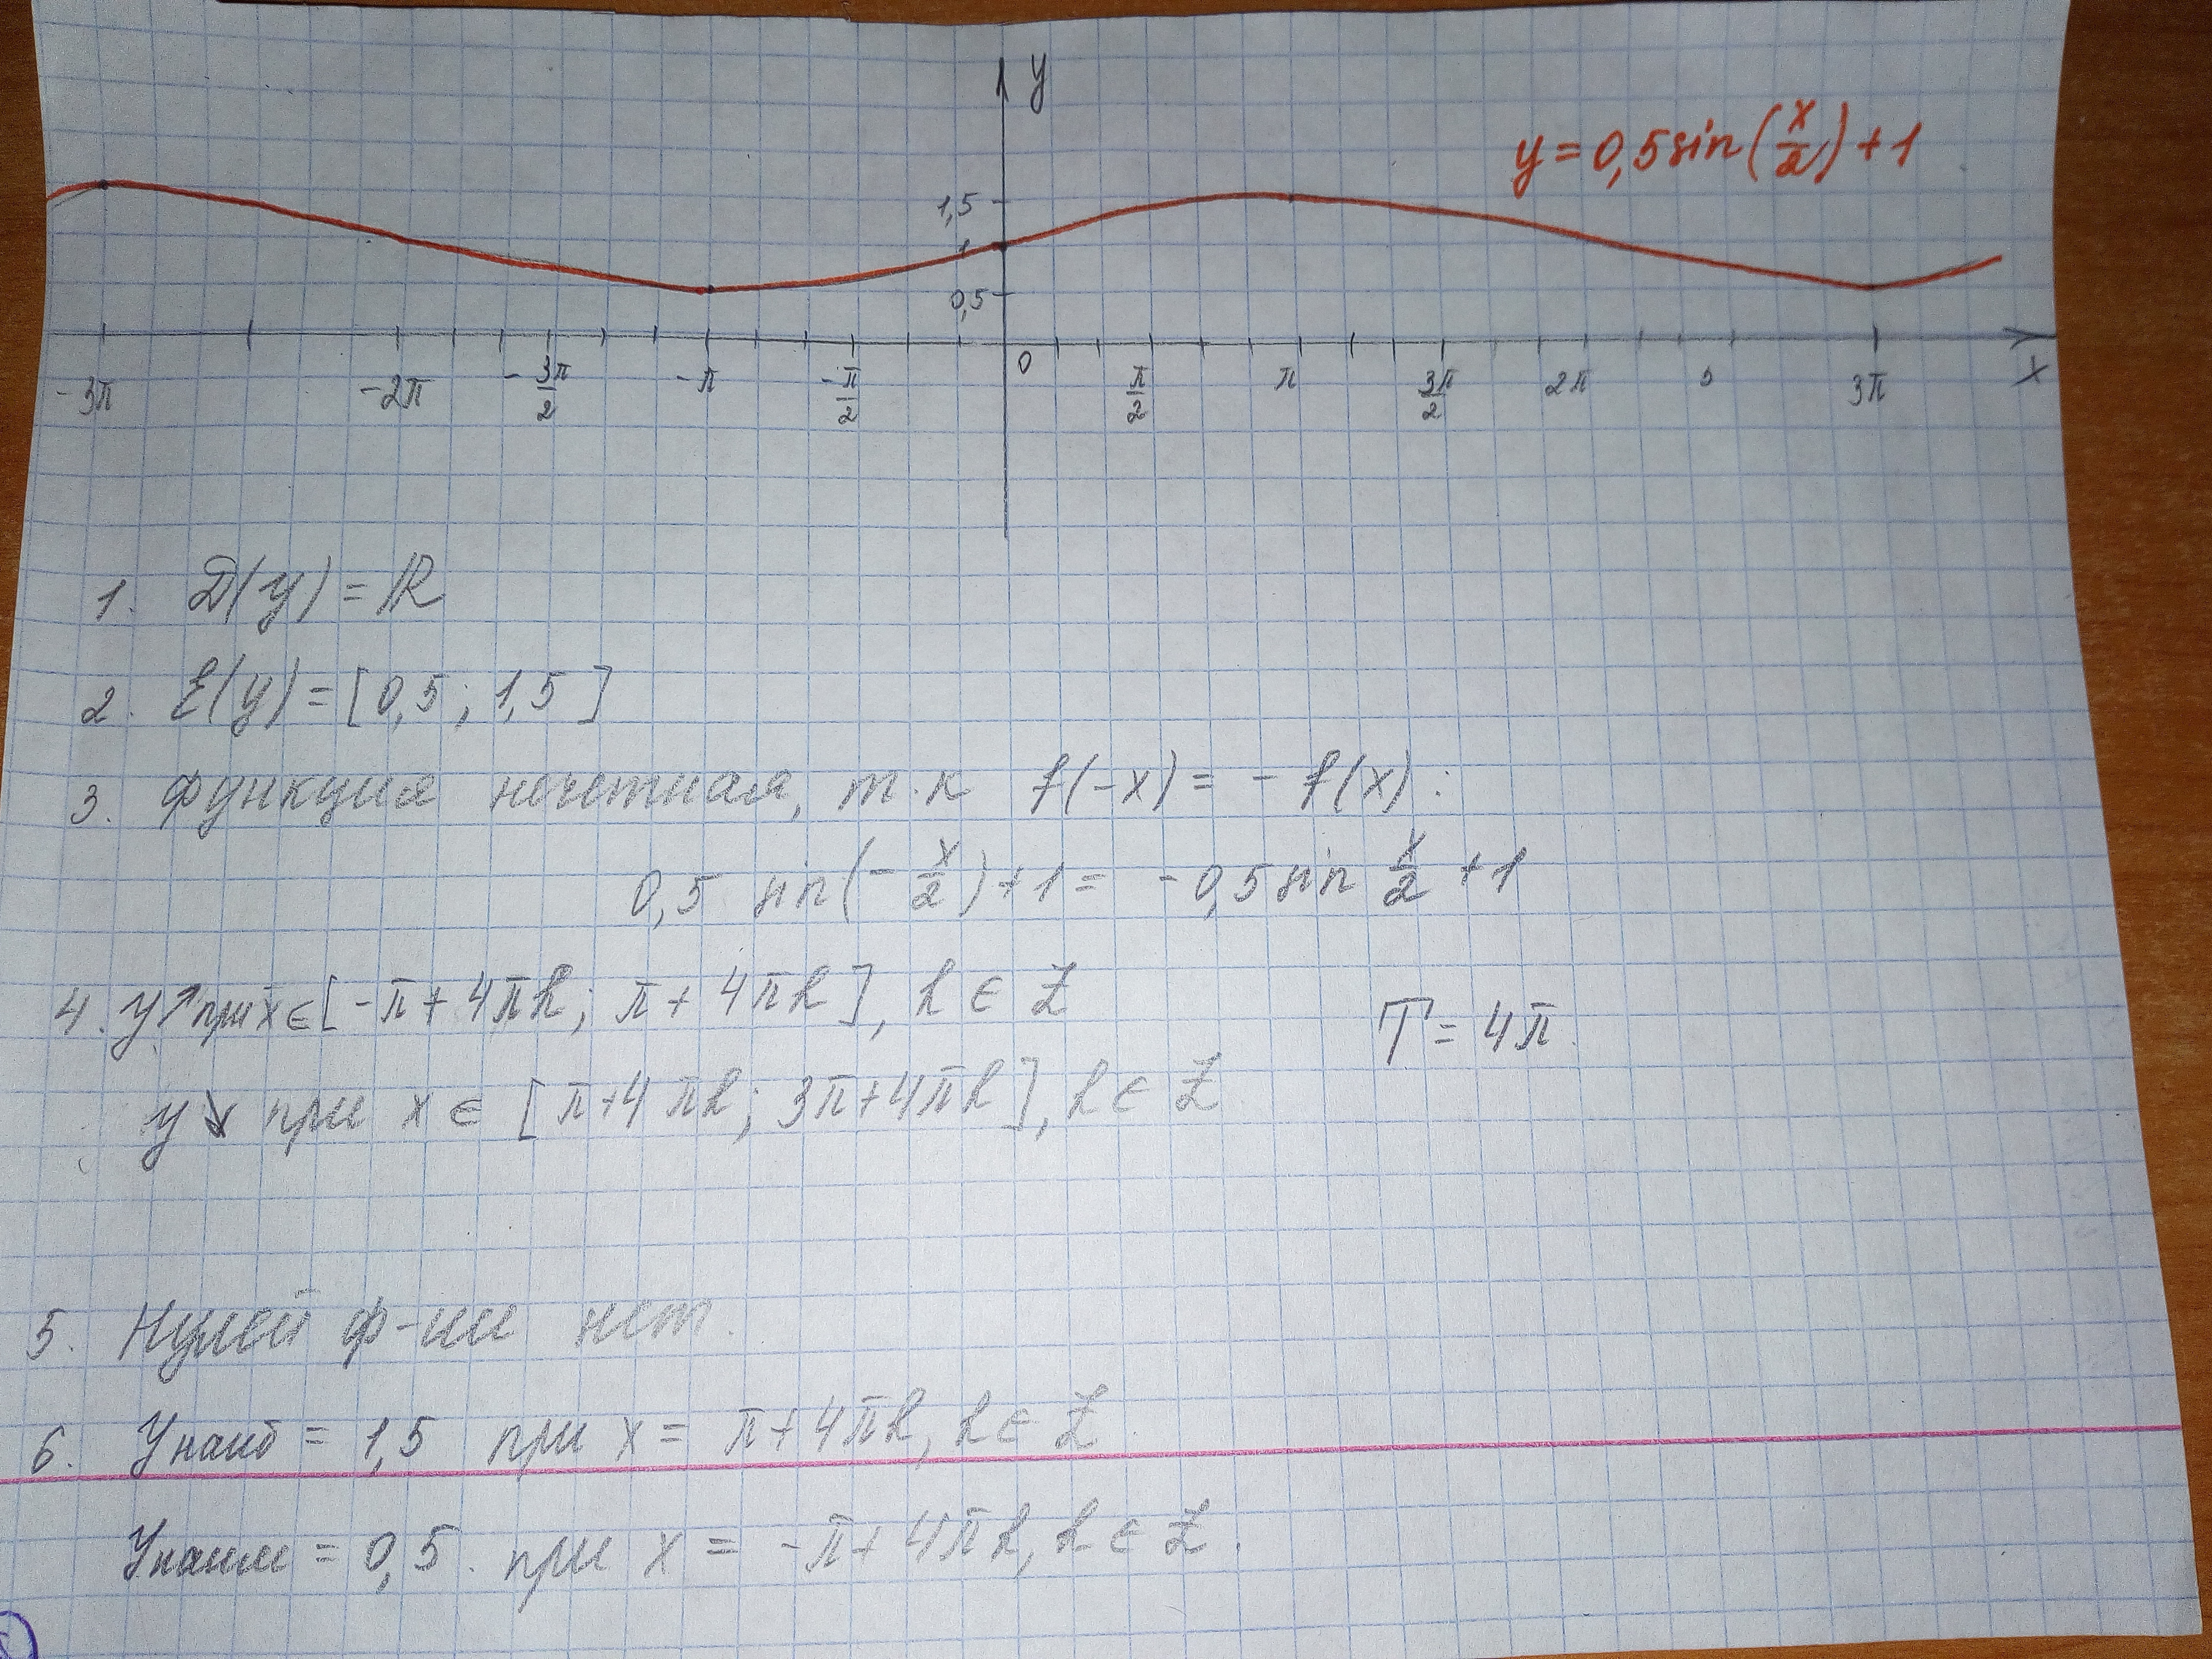 y
y = 0,5 sin(x/2) + 1
1,5
1
0,5
-3π -2π -3π/2 -π -π/2 0 π/2 π 3π/2 2π 3π x
1. D(y) = ℝ
2. E(y) = [0,5 ; 1,5]
3. Функция нечетная, т.к f(-x) = - f(x) :
0,5 sin(-x/2) + 1 = -0,5 sin x/2 + 1
4. y↗ при x ∈ [-π + 4πk; π + 4πk], k ∈ Z
T = 4π.
y↘ при x ∈ [π + 4πk; 3π + 4πk], k ∈ Z
5. Нулей ф-ии нет.
6. Yнаиб = 1,5 при x = π + 4πk, k ∈ Z.
Yнаим = 0,5. при x = -π + 4πk, k ∈ Z.